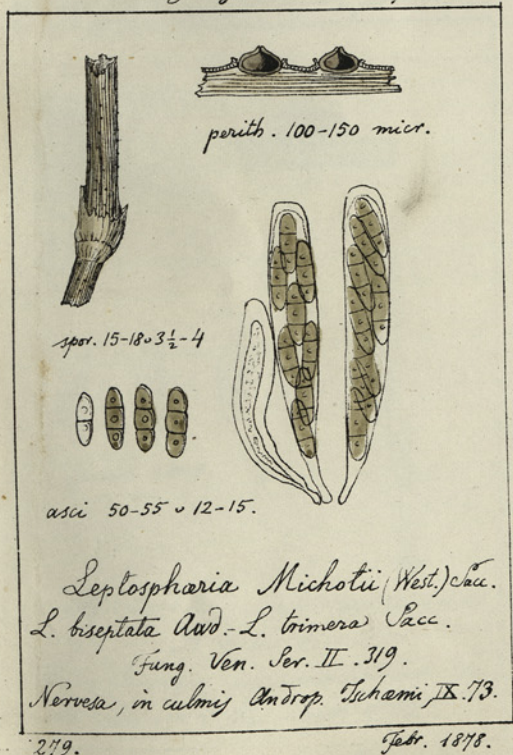 perith. 100-150 micr.
spor. 15-18 ᴗ 3½-4
asci 50-55 ᴗ 12-15.
Leptosphæria Michotii (West.) Sacc.
L. biseptata Awd.- L. trimera Sacc.
Fung. Ven. Ser. II. 319.
Nervesa, in culmis Androp. Ischæmi, IX. 73.
279.
Febr. 1878.